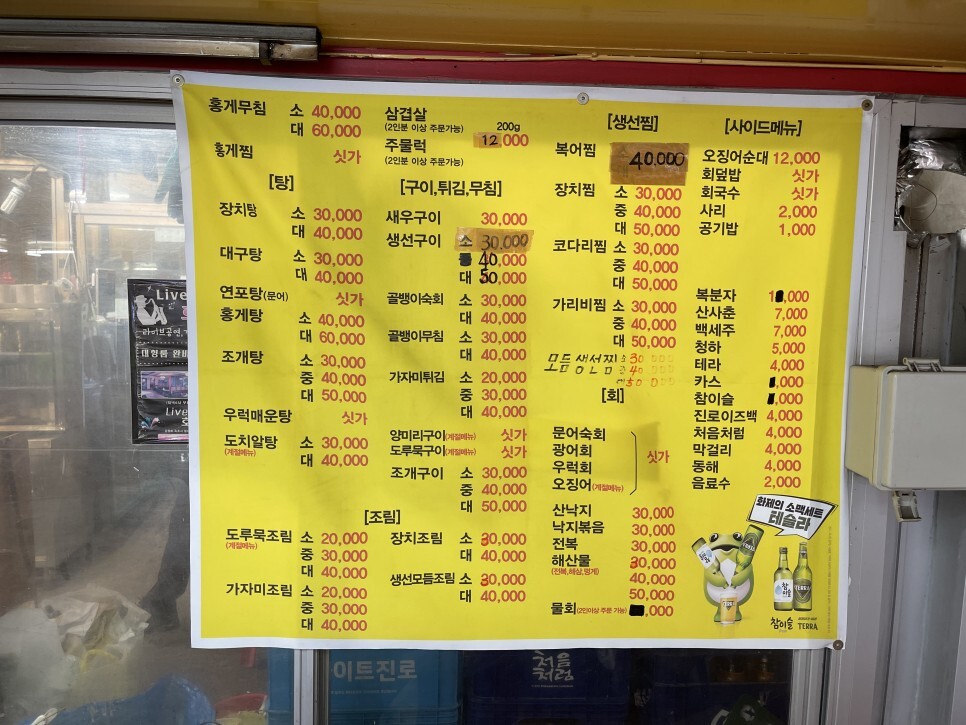 홍게무침 소 40,000
대 60,000
홍게찜 싯가
[탕]
장치탕 소 30,000
대 40,000
대구탕 소 30,000
대 40,000
연포탕(문어) 싯가
홍게탕 소 40,000
대 60,000
조개탕 소 30,000
중 40,000
대 50,000
우럭매운탕 싯가
도치알탕 소 30,000
(계절메뉴) 대 40,000
삼겹살
(2인분 이상 주문가능) 200g
주물럭 12,000
(2인분 이상 주문가능)
[구이,튀김,무침]
새우구이 30,000
생선구이 소 30,000
중 40,000
대 50,000
골뱅이숙회 소 30,000
대 40,000
골뱅이무침 소 30,000
대 40,000
가자미튀김 소 20,000
중 30,000
대 40,000
양미리구이(계절메뉴) 싯가
도루묵구이(계절메뉴) 싯가
조개구이 소 30,000
중 40,000
대 50,000
[조림]
도루묵조림 소 20,000
(계절메뉴) 중 30,000
대 40,000
가자미조림 소 20,000
중 30,000
대 40,000
장치조림 소 30,000
대 40,000
생선모듬조림 소 30,000
대 40,000
[생선찜]
복어찜 40,000
장치찜 소 30,000
중 40,000
대 50,000
코다리찜 소 30,000
중 40,000
대 50,000
가리비찜 소 30,000
중 40,000
대 50,000
모듬생선찜 소 30 000
중 40 000
대 50 000
[회]
문어숙회
광어회
우럭회
오징어(계절메뉴)
싯가
산낙지 30,000
낙지볶음 30,000
전복 30,000
해산물 30,000
(전복,해삼,멍게) 40,000
50,000
물회(2인이상 주문 가능) ,000
[사이드메뉴]
오징어순대 12,000
회덮밥 싯가
회국수 싯가
사리 2,000
공기밥 1,000
복분자 1 ,000
산사춘 7,000
백세주 7,000
청하 5,000
테라 4,000
카스 ,000
참이슬 ,000
진로이즈백 4,000
처음처럼 4,000
막걸리 4,000
동해 4,000
음료수 2,000
화제의 소맥세트
테슬라
참이슬 TERRA
참이슬 TERRA
Live
라이브공연
대형룸 완비
Live
이트진로
처음
처럼